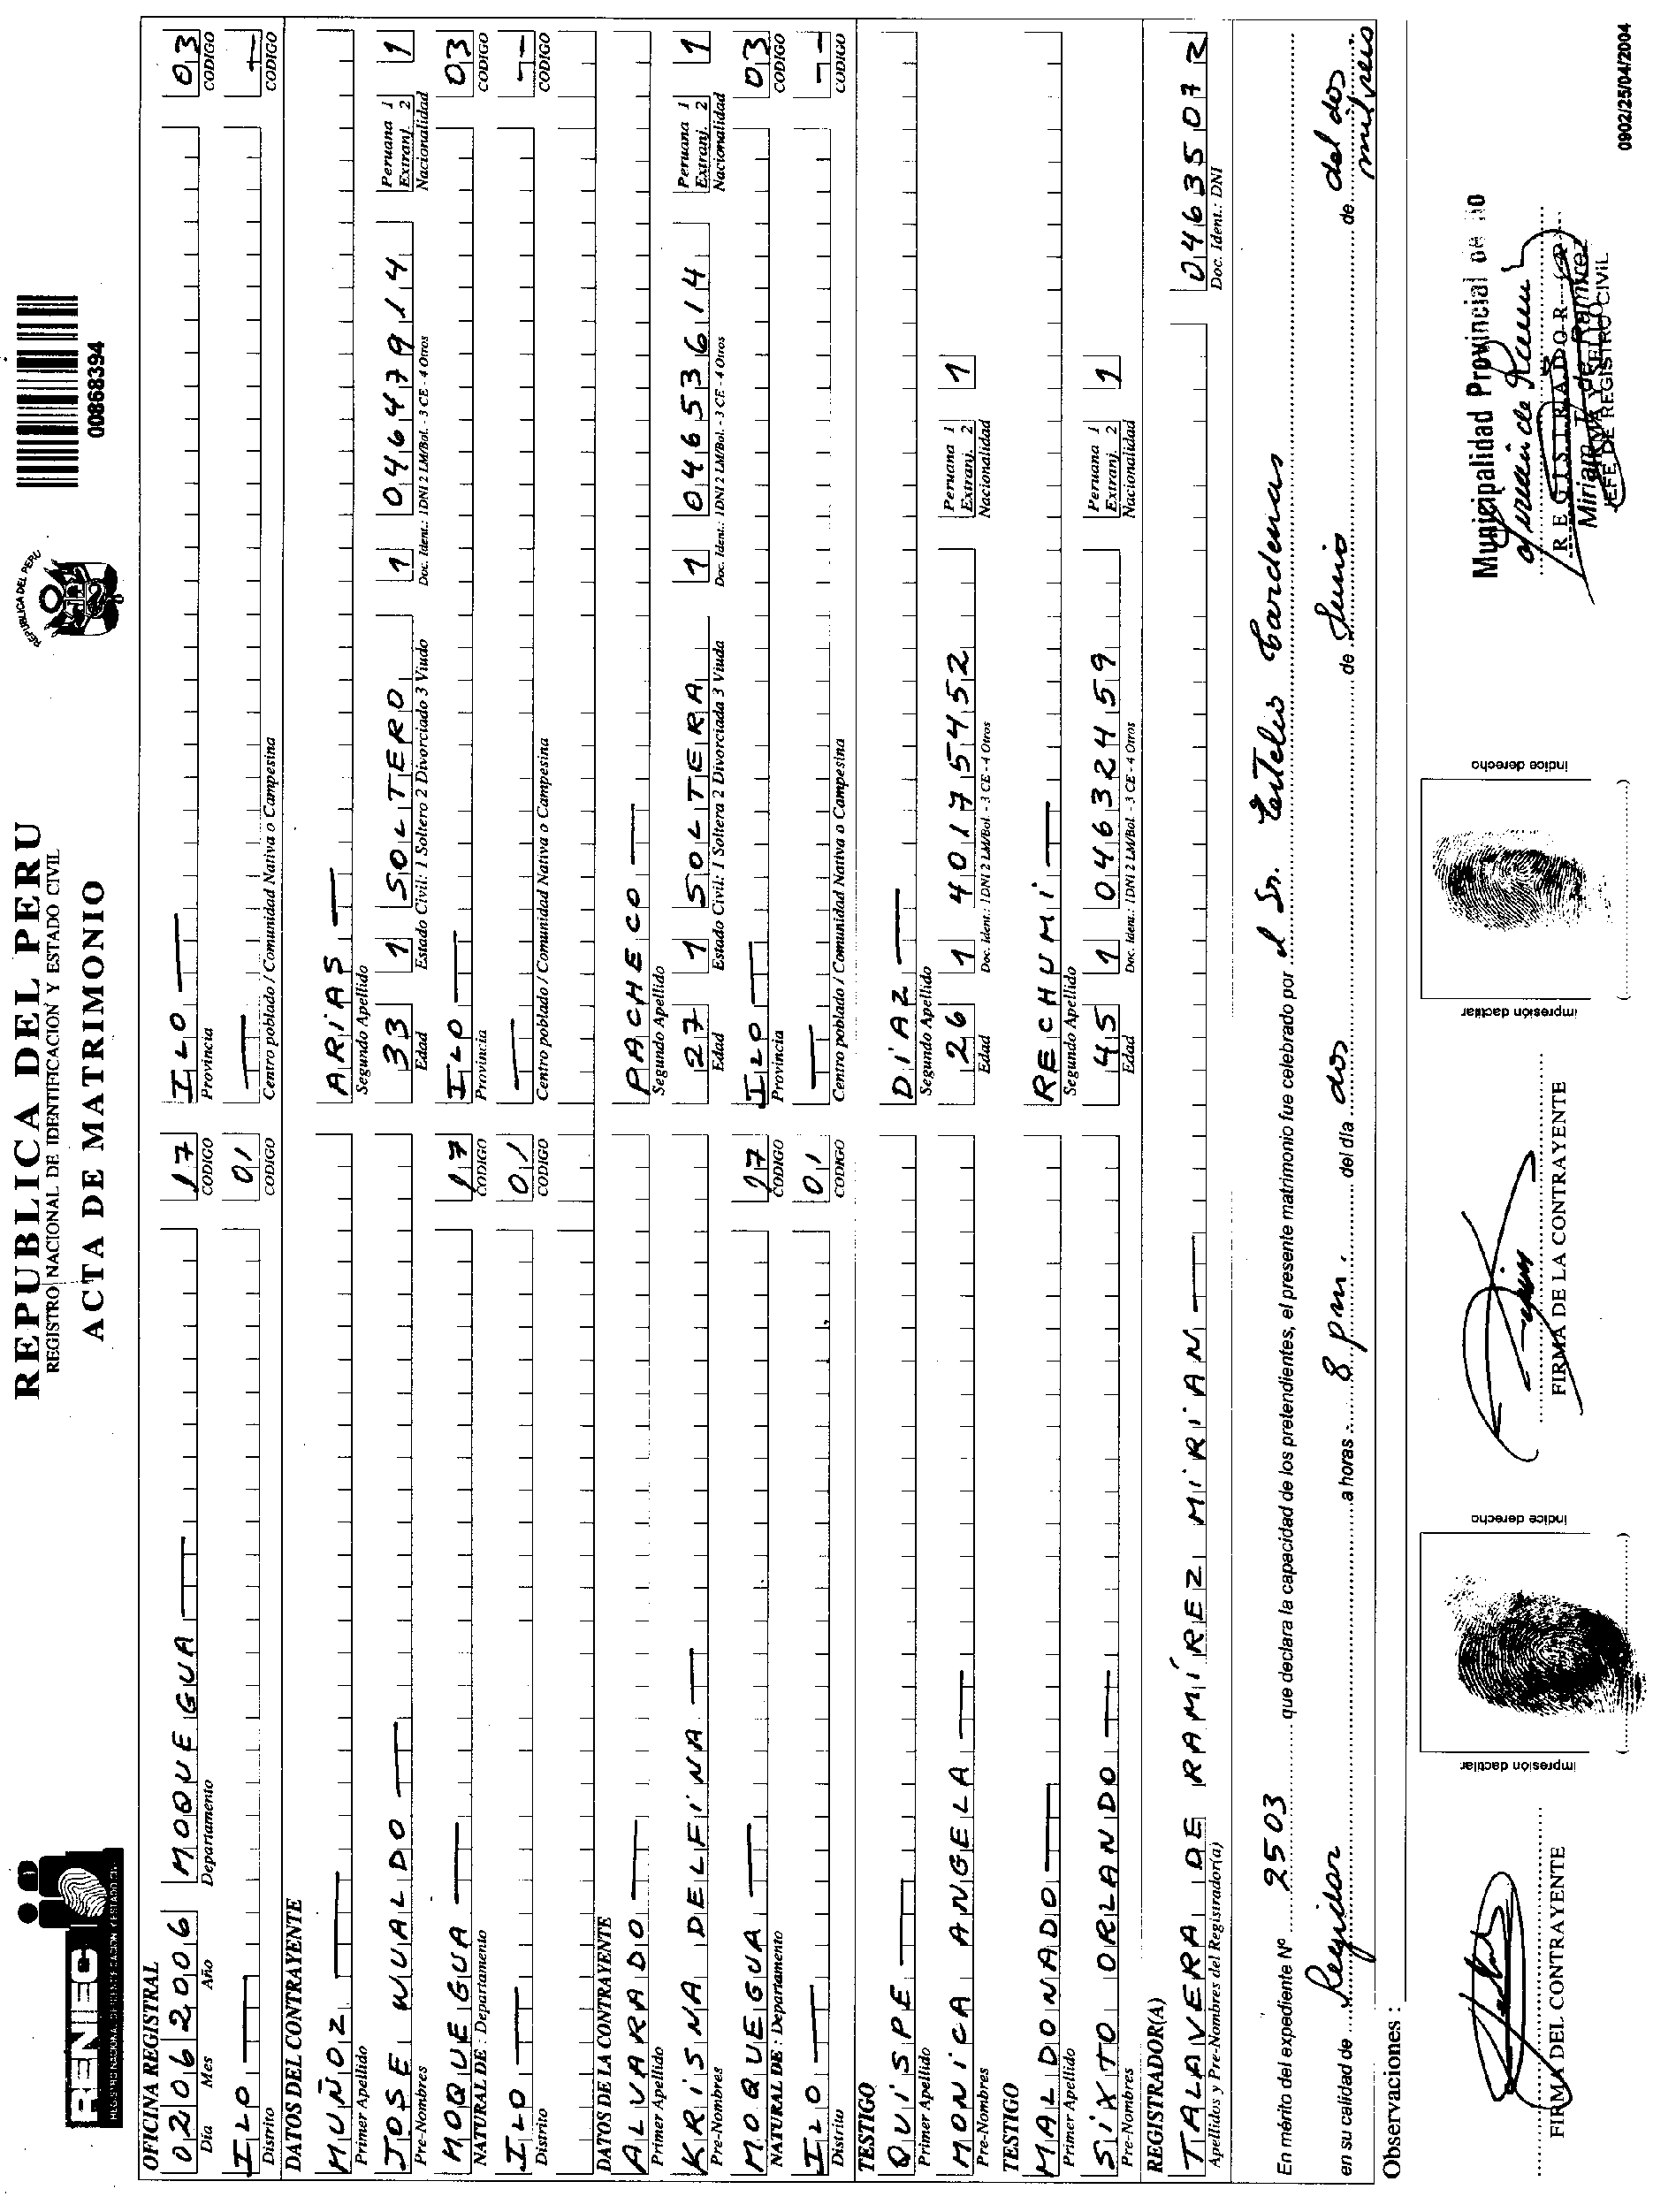 RENIEC
REGISTRO NACIONAL DE IDENTIFICACION Y ESTADO CIVIL
REPUBLICA DEL PERU
REGISTRO NACIONAL DE IDENTIFICACION Y ESTADO CIVIL
ACTA DE MATRIMONIO
REPUBLICA DEL PERU
00868394
OFICINA REGISTRAL
02 06 2006 MOQUEGUA 17 ILO 03
Día Mes Año Departamento CODIGO Provincia CODIGO
ILO 01
Distrito CODIGO Centro poblado / Comunidad Nativa o Campesina CODIGO
DATOS DEL CONTRAYENTE
MUÑOZ ARIAS
Primer Apellido Segundo Apellido
JOSE WUALDO 33 1 SOLTERO 1 04647914 Peruana 1 Extranj. 2 1
Pre-Nombres Edad Estado Civil: 1 Soltero 2 Divorciado 3 Viudo Doc. Ident.: 1DNI 2 LM/Bol. - 3 CE - 4 Otros Nacionalidad
MOQUEGUA 17 ILO 03
NATURAL DE : Departamento CODIGO Provincia CODIGO
ILO 01
Distrito CODIGO Centro poblado / Comunidad Nativa o Campesina CODIGO
DATOS DE LA CONTRAYENTE
ALVARADO PACHECO
Primer Apellido Segundo Apellido
KRISNA DELFINA 27 1 SOLTERA 1 04653614 Peruana 1 Extranj. 2 1
Pre-Nombres Edad Estado Civil: 1 Soltera 2 Divorciada 3 Viuda Doc. Ident.: 1DNI 2 LM/Bol. - 3 CE - 4 Otros Nacionalidad
MOQUEGUA 17 ILO 03
NATURAL DE : Departamento CODIGO Provincia CODIGO
ILO 01
Distrito CODIGO Centro poblado / Comunidad Nativa o Campesina CODIGO
TESTIGO
QUISPE DIAZ
Primer Apellido Segundo Apellido
MONICA ANGELA 26 1 40175452 Peruana 1 Extranj. 2 1
Pre-Nombres Edad Doc. Ident.: 1DNI 2 LM/Bol. - 3 CE - 4 Otros Nacionalidad
TESTIGO
MALDONADO RECHUMI
Primer Apellido Segundo Apellido
SIXTO ORLANDO 45 1 04632459 Peruana 1 Extranj. 2 1
Pre-Nombres Edad Doc. Ident.: 1DNI 2 LM/Bol. - 3 CE - 4 Otros Nacionalidad
REGISTRADOR(A)
TALAVERA DE RAMÍREZ MIRIAN 04635072
Apellidos y Pre-Nombres del Registrador(a) Doc. Ident.: DNI
En mérito del expediente Nº 2503 que declara la capacidad de los pretendientes, el presente matrimonio fue celebrado por el Sr. Cardenas
en su calidad de Regidor a horas 8 pm. del día dos de Junio de del dos
mil seis
Observaciones :
impresión dactilar
índice derecho
impresión dactilar
índice derecho
Municipalidad Provincial de Ilo
REGISTRADOR (A)
Miriam T. de Ramirez
FIRMA Y SELLO
JEFE DE REGISTRO CIVIL
FIRMA DEL CONTRAYENTE
FIRMA DE LA CONTRAYENTE
0902/25/04/2004